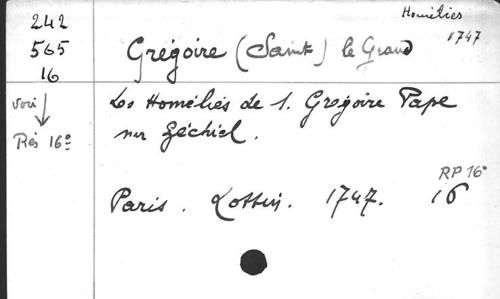 Homélies
1747
242
565
16
Grégoire (Saint) le Grand
voir
Rés 16º
Les Homélies de S. Grégoire Pape
sur Ezéchiel.
RP 16º
Paris. Lottin. 1747. 16